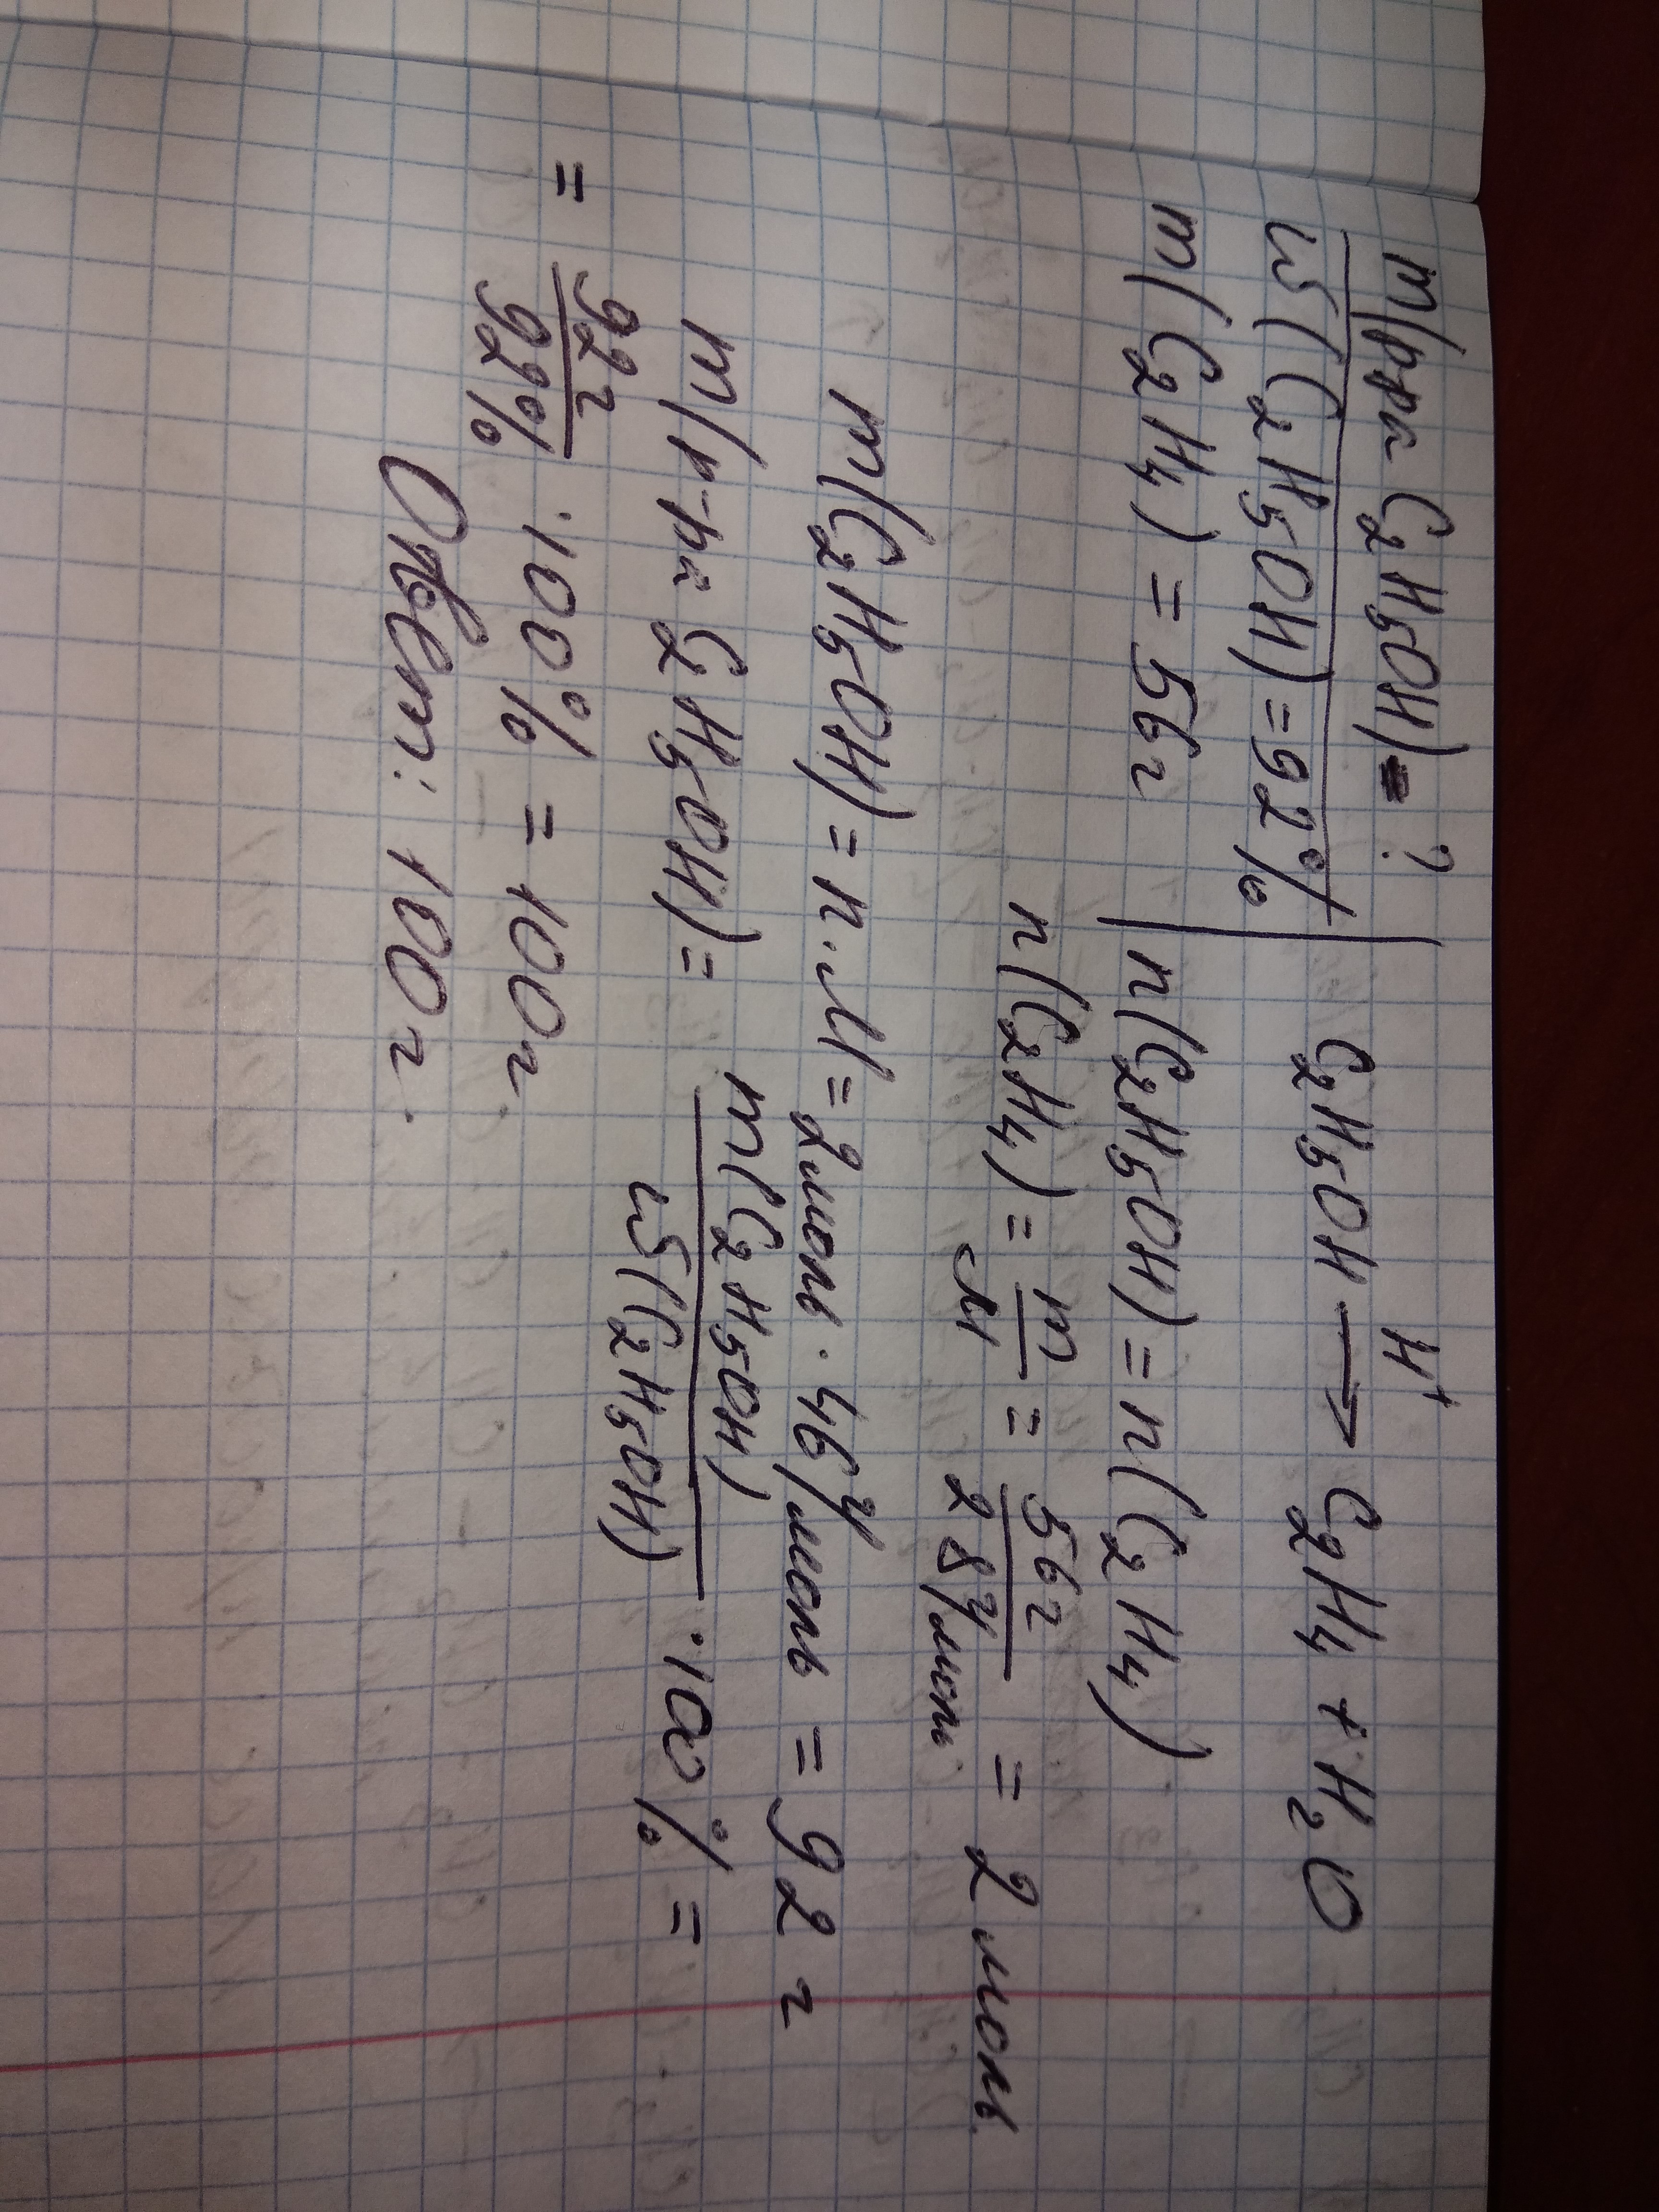 m(р-ра C₂H₅OH) = ? C₂H₅OH ⟶ C₂H₄ + H₂O
H⁺
ω(C₂H₅OH) = 92%
m(C₂H₄) = 56г
n(C₂H₅OH) = n(C₂H₄)
n(C₂H₄) = m/M = 56г/28г/моль = 2 моль
m(C₂H₅OH) = n·M = 2моль · 46г/моль = 92 г
m(р-ра C₂H₅OH) = m(C₂H₅OH)/ω(C₂H₅OH) · 100% =
= 92г/92% · 100% = 100г
Ответ: 100г.